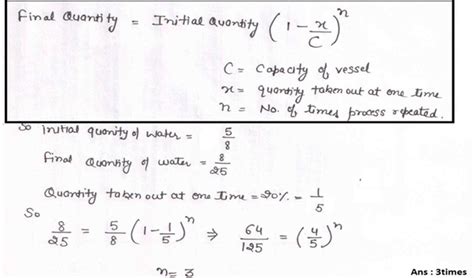 Final Quantity = Initial Quantity (1 - x/C)^n
C = Capacity of vessel
x = quantity taken out at one time
n = No. of times process repeated.
So Initial quantity of water = 5/8
Final Quantity of water = 8/25
Quantity taken out at one Time = 20% - 1/5
So
8/25 = 5/8 (1 - 1/5)^n ⇒ 64/125 = (4/5)^n
n = 3
Ans : 3times